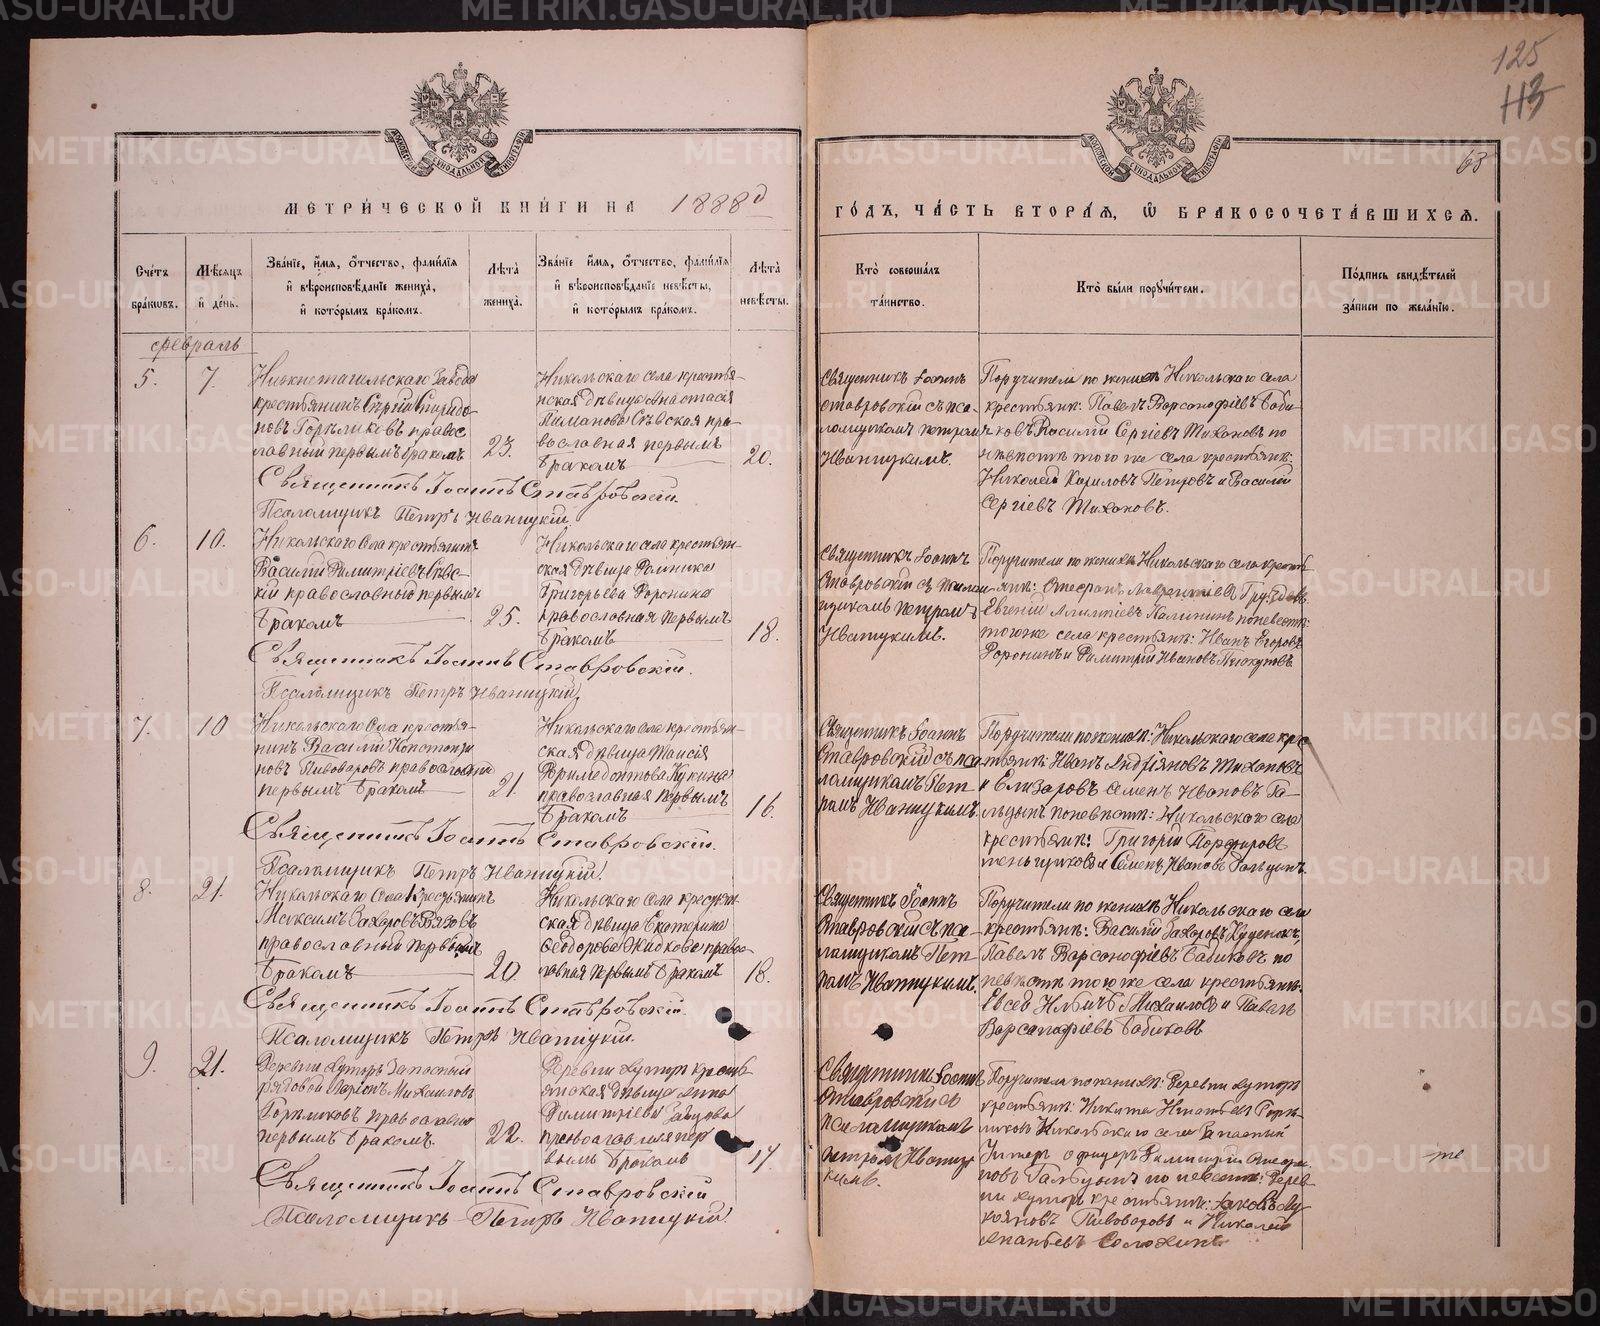 125
113
63
МЕТРИ́ЧЕСКОЙ КНИ́ГИ НА 1888 д
ГО́ДЪ, ЧА́СТЬ ВТОРА́Я, Ѡ БРАКОСОЧЕТА́ВШИХСЯ.
Счётъ бра́ковъ.
Мѣ́сяцъ и́ де́нь.
Зва́нїе, и́мя, о́тчество, фами́лїя
и́ вѣроисповѣ́данїе жениха̀,
и́ кото́рымъ бра́комъ.
Лѣ́та жениха̀.
Зва́нїе, и́мя, о́тчество, фами́лїя
и́ вѣроисповѣ́данїе невѣ́сты,
и́ кото́рымъ бра́комъ.
Лѣ́та невѣ́сты.
Кто̀ соверша́лъ
та́инство.
Кто̀ бы́ли поручи́тели.
По́дпись свидѣ́телей
за́писи по жела́нїю.
февраль
5. 7.
Нижнетагильскаго Завода
крестьянинъ Сергій Спиридо-
новъ Горѣликовъ правос
лавный первымъ бракомъ
23.
Никольскаго села крестья-
нская дѣвица Анастасія
пра-
вославная первымъ
бракомъ
20.
Священникъ Іоаннъ
Ставровскій съ пса-
ломщикомъ Петромъ
Иваницкимъ.
Поручители по женихѣ Никольскаго села
крестьян: Павелъ Варсонофіевъ Баби-
ковъ Василій Сергіевъ Тихановъ по
невѣстѣ того же села крестьян:
Николай Кириловъ Петровъ и Василій
Сергіевъ Тихановъ.
Священникъ Іоаннъ Ставровскій.
Псаломщикъ Петръ Иваницкій
6. 10.
Никольскаго села крестьянинъ
Василій Димитріевъ
православный первымъ
бракомъ
25.
Никольскаго села крестьян-
ская дѣвица
Григорьева Воронина
православная первымъ
бракомъ
18.
Священникъ Іоаннъ
Ставровскій съ псалом
щикомъ Петромъ
Иваницкимъ.
Поручители по женихѣ Никольскаго села крестьян
Лаврентіевъ
Евгеній Калининъ по невестѣ:
тогоже села крестьян: Иванъ Егоровъ
Воронинъ и Димитрій Ивановъ
Священникъ Іоаннъ Ставровскій.
Псаломщикъ Петръ Иваницкій
7. 10
Никольскаго Села крестья-
нинъ Василій Константи
новъ Пивоваровъ православный
первымъ бракомъ
21.
Никольскаго села крестьян-
ская дѣвица Таисія
Кукина
православная первымъ
бракомъ
16.
Священникъ Іоаннъ
Ставровскій съ пса-
ломщикомъ Пет-
ромъ Иваницкимъ.
Поручители по женихѣ: Никольскаго села крес
тьян: Иванъ Андріяновъ Тихановъ
и Елизаровъ Семенъ Ивановъ Га-
льцынъ по невѣстѣ: Никольскаго села
крестьян: Григорій Порфировъ
и Семенъ Ивановъ Гальцынъ.
Священникъ Іоаннъ Ставровскій.
Псаломщикъ Петръ Иваницкій.
8. 21.
Никольскаго Села Крестьянинъ
Максимъ Захаровъ
православный первымъ
бракомъ
20
Никольскаго села крестьян
ская дѣвица Екатерина
Ѳеодорова Жидкова правос-
лавная первымъ бракомъ
18.
Священникъ Іоаннъ
Ставровскій съ пса-
ломщикомъ Пет-
ромъ Иваницкимъ.
Поручители по женихѣ Никольскаго села
крестьян: Василій Захаровъ
Павелъ Варсонофіевъ Бабиковъ по
невѣстѣ того же села крестьян:
Евсей Михаиловъ и Павелъ
Варсанофіевъ Бабиковъ
Священникъ Іоаннъ Ставровскій.
Псаломщикъ Петръ Иваницкій.
9. 21.
Деревни Хуторъ Запасный
рядовой Ларіонъ Михаиловъ
Горѣликовъ православный
первымъ бракомъ.
22.
Деревни Хуторъ крестья-
нская дѣвица Анна
Димитріева Зайцова
православная пер
вымъ бракомъ
17
Священникъ Іоаннъ
Ставровскій съ
псаломщикомъ
Петромъ Иваниц
кимъ.
Поручители по женихѣ: Деревни Хуторъ
крестьян: Никита Игнатьевъ Горѣ-
ликовъ Никольскаго села Запасный
Унтеръ офицеръ Димитрій
новъ Гальцынъ по невестѣ: Дерев-
ни Хуторъ крестьян: Яковъ Лу-
кояновъ Пивоваровъ и Николай
Священникъ Іоаннъ Ставровскій
Псаломщикъ Петръ Иваницкій.
METRIKI.GASO-URAL.RU